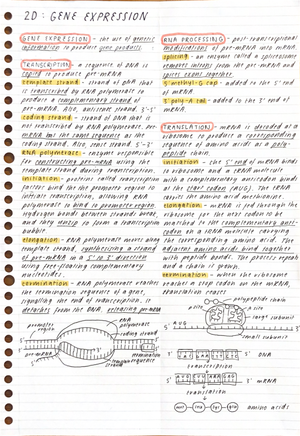 2D: GENE EXPRESSION
GENE EXPRESSION - the use of genetic
information to produce gene products.
TRANSCRIPTION - a sequence of DNA is
copied to produce pre-mRNA
template strand - strand of DNA that
is transcribed by RNA polymerase to
produce a complementary strand of
pre-mRNA. Also, antisense strand. 3'-5'
coding strand - strand of DNA that is
not transcribed by RNA polymerase.
mRNA has the same sequence as the
coding strand. Also, sense strand 5'-3'
RNA polymerase - enzyme responsible
for constructing pre-mRNA using the
template strand during transcription.
initiation - proteins called transcription
factors bind the promoter region to
initiate transcription, allowing RNA
polymerase to bind to promoter region.
Hydrogen bonds between strands break,
and they unzip to form a transcription
bubble
elongation - RNA polymerase moves along
template strand, synthesising a strand
of pre-mRNA in a 5' to 3' direction
using free-floating complementary
nucleotides.
termination - RNA polymerase reaches
the termination sequence of a gene,
signalling the end of transcription. It
detaches from the DNA, releasing pre-mRNA
promoter
region
RNA
polymerase
coding strand
5'
3'
3'
5'
pre-mRNA
template strand
termination
sequence
RNA PROCESSING - post-transcriptional
modifications of pre-mRNA into mRNA.
splicing - an enzyme called a spliceosome
removes introns from the pre-mRNA and
splices exons together.
5' methyl-G cap - added to the 5' end
of mRNA
3' poly-A tail - added to the 3' end of
mRNA.
TRANSLATION - mRNA is decoded at a
ribosome to produce a corresponding
sequence of amino acids as a poly-
peptide chain.
initiation - the 5' end of mRNA binds
to ribosome and a tRNA molecule
with complementary anticodon binds
at the start codon (AUG). The tRNA
carries the amino acid methionine.
elongation - mRNA is fed through the
ribosome for the next codon to be
matched to the complementary anti-
codon on a tRNA molecule carrying
the corresponding amino acid. The
adjacent amino acids bind together
with peptide bonds. The process repeats
and a chain is grown.
termination - when the ribosome
reaches a stop codon on the mRNA,
translation ceases
polypeptide chain
P site
A site
large subunit
AUG
5'
3'
small subunit
DNA
transcription
5'
3' mRNA
translation
amino acids